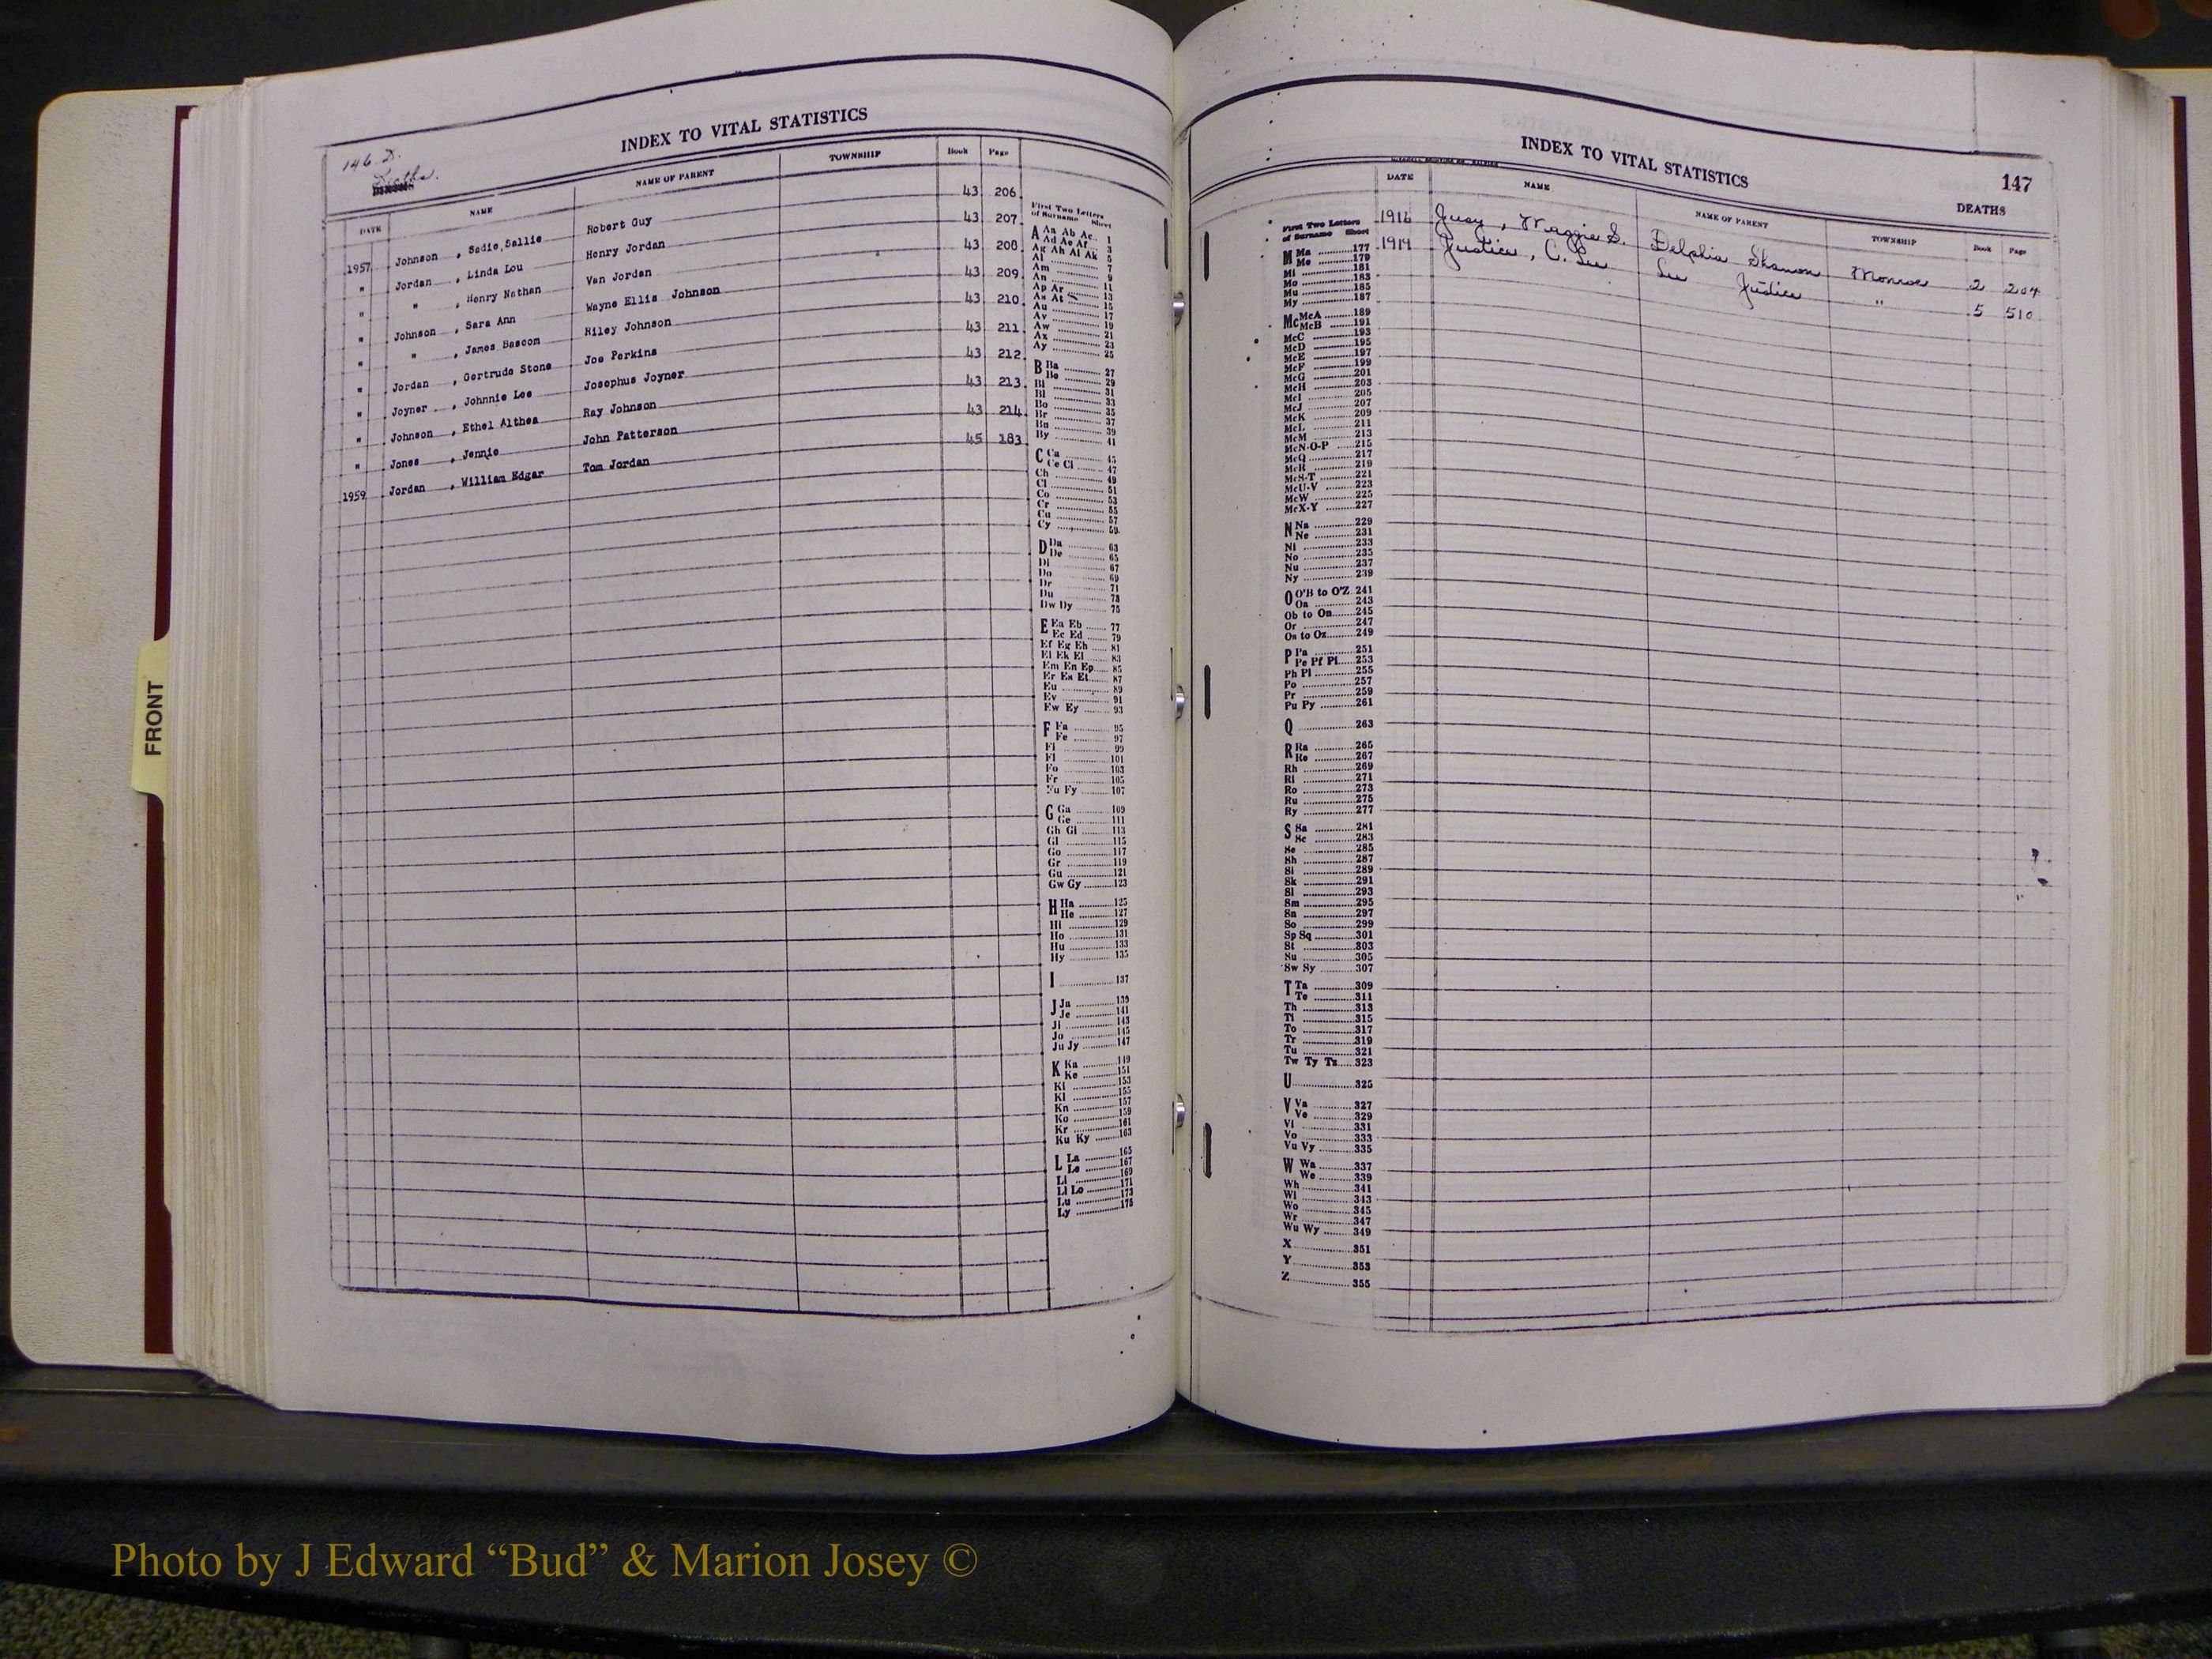 146 D.
Deaths.
INDEX TO VITAL STATISTICS
DATE NAME NAME OF PARENT TOWNSHIP Book Page
1957 Johnson , Sadie Sallie Robert Guy 43 206
" Jordan , Linda Lou Henry Jordan 43 207
" " , Henry Nathan Van Jordan 43 208
" Johnson , Sara Ann Wayne Ellis Johnson 43 209
" " , James Bascom Riley Johnson 43 210
" Jordan , Gertrude Stone Joe Perkins 43 211
" Joyner , Johnnie Lee Josephus Joyner 43 212
" Johnson , Ethel Althea Ray Johnson 43 213
" Jones , Jennie John Patterson 43 214
1959 Jordan , William Edgar Tom Jordan 45 183
First Two Letters
of Surname Sheet
A Aa Ab Ac 1
Ad Ae Af 3
Ag Ah Ai Ak 5
Al 7
Am 9
An 11
Ap Ar 13
As At 15
Au 17
Av 19
Aw 21
Ax 23
Ay 25
B Ba 27
Be 29
Bi 31
Bl 33
Bo 35
Br 37
Bu 39
By 41
C Ca 45
Ce Ci 47
Ch 49
Cl 51
Co 53
Cr 55
Cu 57
Cy 59
D Da 63
De 65
Di 67
Do 69
Dr 71
Du 73
Dw Dy 75
E Ea Eb 77
Ec Ed 79
Ef Eg Eh 81
Ei Ek El 83
Em En Ep 85
Er Es Et 87
Eu 89
Ev 91
Ew Ey 93
F Fa 95
Fe 97
Fi 99
Fl 101
Fo 103
Fr 105
Fu Fy 107
G Ga 109
Ge 111
Gh Gi 113
Gl 115
Go 117
Gr 119
Gu 121
Gw Gy 123
H Ha 125
He 127
Hi 129
Ho 131
Hu 133
Hy 135
I 137
J Ja 139
Je 141
Ji 143
Jo 145
Ju Jy 147
K Ka 149
Ke 151
Ki 153
Kl 155
Kn 157
Ko 159
Kr 161
Ku Ky 163
L La 165
Le 167
Li 169
Ll Lo 171
Lu 173
Ly 175
INDEX TO VITAL STATISTICS
147
DEATHS
DATE NAME NAME OF PARENT TOWNSHIP Book Page
1916 , Maggie S. Delphia Shannon Monroe 2 204
1919 Justice , C. Lee Lee Justice " 5 510
First Two Letters
of Surname Sheet
M Ma 177
Me 179
Mi 181
Mo 183
Mu 185
My 187
Mc McA 189
McB 191
McC 193
McD 195
McE 197
McF 199
McG 201
McH 203
McI 205
McJ 207
McK 209
McL 211
McM 213
McN-O-P 215
McQ 217
McR 219
McS-T 221
McU-V 223
McW 225
McX-Y 227
N Na 229
Ne 231
Ni 233
No 235
Nu 237
Ny 239
O O'B to O'Z 241
Oa 243
Ob to On 245
Or 247
Os to Oz 249
P Pa 251
Pe Pf Pi 253
Ph Pl 255
Po 257
Pr 259
Pu Py 261
Q 263
R Ra 265
Re 267
Rh 269
Ri 271
Ro 273
Ru 275
Ry 277
S Sa 281
Sc 283
Se 285
Sh 287
Si 289
Sk 291
Sl 293
Sm 295
Sn 297
So 299
Sp Sq 301
St 303
Su 305
Sw Sy 307
T Ta 309
Te 311
Th 313
Ti 315
To 317
Tr 319
Tu 321
Tw Ty Tz 323
U 325
V Va 327
Ve 329
Vi 331
Vo 333
Vu Vy 335
W Wa 337
We 339
Wh 341
Wi 343
Wo 345
Wr 347
Wu Wy 349
X 351
Y 353
Z 355
FRONT
Photo by J Edward “Bud” & Marion Josey ©